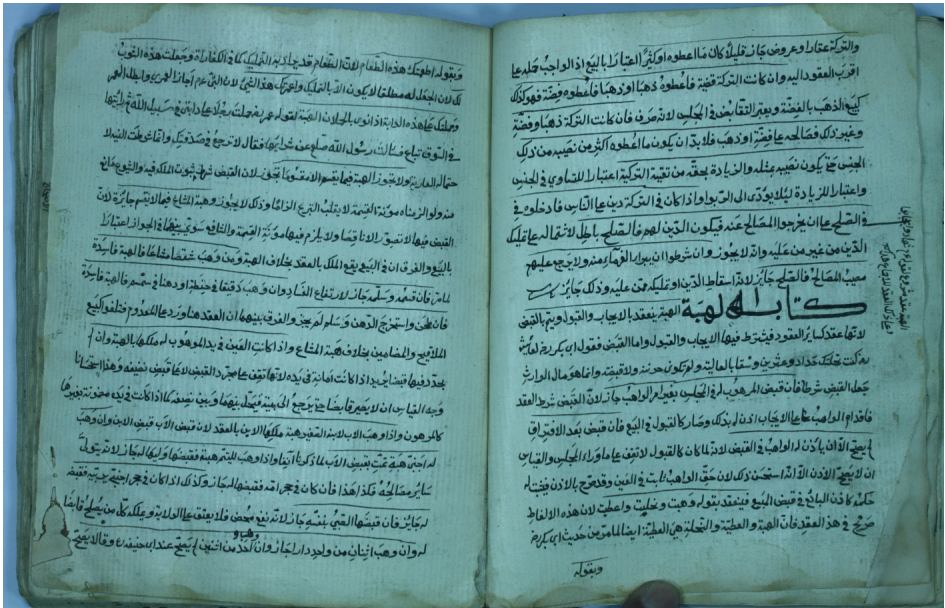 والتركة عقارا وعروض جاز قليلا كان ما اعطوه او كثيرا اعتبارا بالبيع اذ الواجب حمله على
اقرب العقود اليه وان كانت التركة فضة فاعطوه ذهبا او ذهبا فاعطوه فضة فهو كذلك
كبيع الذهب بالفضة ويعتبر التقابض في المجلس لانه صرف فان كانت التركة ذهبا وفضة
وغير ذلك فصالحه على فضة او ذهب فلا بد ان يكون ما اعطوه اكثر من نصيبه من ذلك
الجنس حتى يكون نصيبه بمثله والزيادة بحقه من بقية التركة اعتبارا للتساوي في الجنس
واعتبارا للزيادة لئلا يؤدي الى الربوا واذا كان في التركة دين على الناس فادخلوه في
الصلح على ان يخرجوا المصالح عنه فيكون الدين لهم فالصلح باطل لاشتماله على تمليك
الدين من غير من عليه وانه لا يجوز وان شرطوا ان يبرا الغرماء منه ولا يرجع عليهم
نصيب المصالح فالصلح جائز لانه اسقاط الدين او تمليكه ممن عليه وذلك جائز
كتاب الهبة الهبة ينعقد بالايجاب والقبول ويتم بالقبض
لانها عقد كساير العقود فيشترط فيها الايجاب والقبول واما القبض فقول ابي بكر رضه لعايشة
جعل القبض شرطا فان قبض الموهوب له في المجلس بغير امر الواهب جاز لان القبض شرط العقد
فاقدام الواهب على الايجاب اذن له بذلك وصار كالقبول في البيع فان قبض بعد الافتراق
لم يصح الا ان ياذن له الواهب في القبض لانه لما كان كالقبول لا تقف على ما وراء المجلس والقياس
ان لا يصح الاذن الا انه استحسن ذلك لان حق الواهب ثابت في العين وقد صرح بالاذن فيثبت
حكمه كاذن البائع في قبض المبيع فينعقد بقوله وهبت ونحلت واعطيت لان هذه الالفاظ
صريح في هذا العقد فان الهبة والعطية والنحلة هي العطية ايضا لما مر من حديث ابي بكر رضه
وبقوله
وبقوله اطعمتك هذه الطعام لان الطعام قد يراد به التمليك كما في الكفارة وجعلت هذه الثوب
لك لان الجعل له مطلقا لا يكون الا بالتمليك واعمرتك هذا الشئ لان النبي عم اجاز العمرى وابطل
وحملتك على هذه الدابة اذا نوى بالحملان الهبة
في السوق تباع فسالت رسول الله صلعم عن شرايها فقال لا ترجع في صدقتك
ولا يجوز الهبة فيما يقسم الا مقسوما يحوز لان القبض شرط ثبوت الملك فيه والشيوع مانع
منه ولو الزمناه مؤنة القسمة لا ينقلب التبرع الزاما وذلك لا يجوز وهبة المشاع فيما لا يقسم جائزة لان
القبض فيها لا تصور الا ناقصا ولا يلزم فيها مؤنة القسمة والشافعي سوى بينهما في الجواز اعتبارا
بالبيع والفرق ان في البيع يقع الملك بالعقد بخلاف الهبة ومن وهب شقصا مشاعا فالهبة فاسدة
لما مر فان قسمه وسلمه جاز لارتفاع الفساد وان وهب دقيقا في حنطة او دهنا في سمسم فالهبة فاسدة
فان طحن واستخرج الدهن وسلم لم يجز والفرق بينهما ان العقد هنا ورد على المعدوم فتلغو كبيع
الملاقيح والمضامين بخلاف هبة المشاع واذا كانت العين في يد الموهوب له ملكها بالهبة وان لم
يجدد فيها قبضا جديدا اذا كانت امانة في يده لانها تقف على مجرد القبض
كالمرهون واذا وهب الاب لابنه الصغير هبة ملكها الابن بالعقد لان قبض الاب قبض الابن وان وهب
له اجنبي هبة تمت بقبض الاب لما ذكرنا انفا واذا وهب لليتيم هبة فقبضها وليها له جاز لانه يتولى
ساير مصالحه فكذا هذا فان كان في حجر امه فقبضها له جائز وكذلك اذا كان في حجر اجنبي يربيه فقبضه
له جائز فان قبضها الصبي بنفسه جاز لانه نفع محض فلا يقف على الولاية
له وان وهب اثنان من واحد دارا جاز وان وهب واحد من اثنين لم يصح عند ابي حنيفة رح وقالا يصح